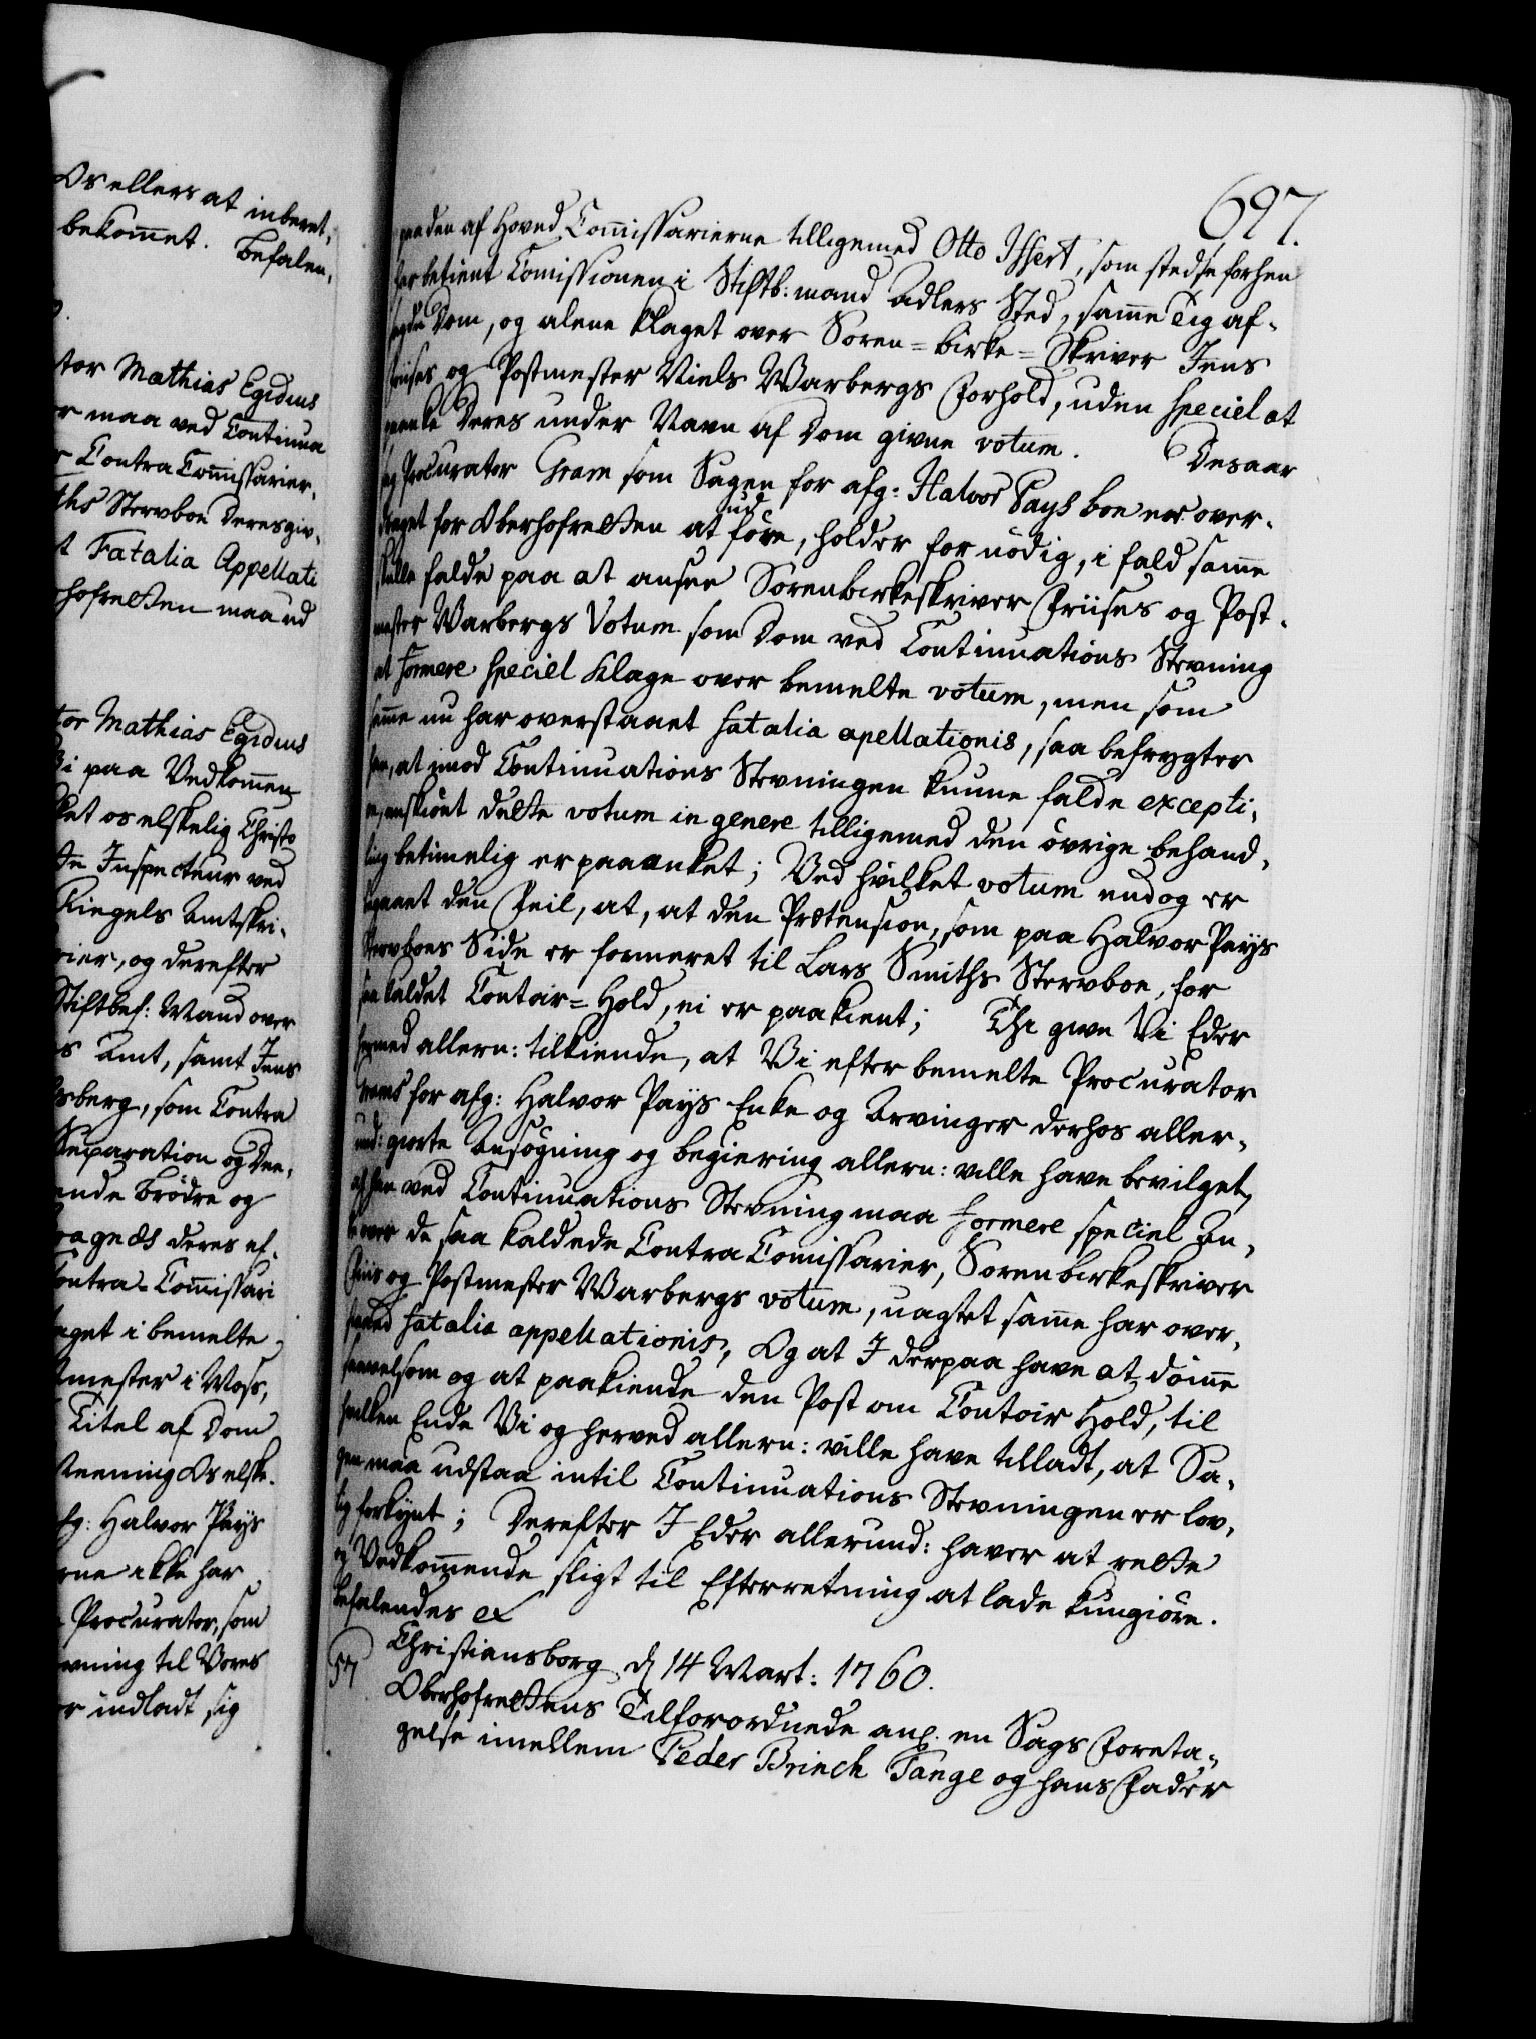 Os ellers at inberet,
bekommet. Befalen,
tor Mathias Egidius
r maa ved Continua
r Contra Commissarier,
ths Stervboe deres giv,
t Fatalia Appellati
rhofretten maa ud
tor Mathias Egidius
Vi paa Vedkommen
ket os elskelig Christo
tte Inspecteur ved
Riegels Amtskri,
rier, og derefter
Stiftbef: Mand over
s Amt, samt Jens
sberg, som Contra
Separation og Dee,
ende brödre og
ragnæs deres ef,
Contra-Commissari
eget i bemelte
tmester i Moss,
Titel af Dom
teening Os elsk.
fg: Halvor Pays
rne ikke har
Procurator, som
vning til Vores
er indladt sig
697.
paa den af Hoved Commissarierne tilligemed Otto Issert, som stedse forhen
har betient Comissionen i Stiftb: mand Adlers Sted, samme Tiid af-
sagde Dom, og alene klaget over Soren-birke-Skriver Jens
Friises og Postmester Niels Warbergs Forhold, uden speciel at
paanke deres under Navn af Dom givne votum. Desaar,
sag Procurator Gram som Sagen for afg: Halvor Pays boe er over-
draget for Oberhofretten at udföre, holder for nödig, i fald samme
skulle falde paa at ansee Sorenbirkeskriver Friises og Post-
mester Warbergs Votum som Dom ved Continuations Stevning
at formere speciel Klage over bemelte votum, men som
samme nu har overstaaet fatalia apellationis, saa befrygter
han, at imod Continuations Stevningen kunne falde excepti-
on, enskiönt dette votum in genere tilligemed den övrige behand-
ling betimelig er paaanket; Ved hvilket votum endog er
begaaet den Feil, at, at den Prætension, som paa Halvor Pays
Stervboes Side er formeret til Lars Smiths Stervboe, for
saa kaldet Contoir-Hold, ei er paakient; Thi give Vi Eder
hermed allern: tilkiende, at Vi efter bemelte Procurator
Grams for afg: Halvor Pays Enke og Arvinger derhos aller-
und: giorte Ansögning og begiering allern: ville have bevilget,
at han ved Continuations Stevning maa formere speciel An-
ke over de saa kaldede Contra Comissarier, Sorenbirkeskriver
Friis og Postmester Warbergs votum, uagtet samme har over-
staaed fatalia appellationis, Og at I derpaa have at dömme
saavelsom og at paakiende den Post om Contoir Hold, til
hvilken Ende Vi og herved allern: ville have tilladt, at Sa-
gen maa udstaa intil Continuations Stevningen er lov-
lig forkynt; Derefter I Eder allerund: haver at rette
og Vedkommende sligt til Efterretning at lade kungiöre.
befalendes &
Christiansborg d 14 Mart: 1760.
57. Oberhofrettens Tilforordnede anl. en Sags Foreta-
gelse imellem Peder Brinch Tange og hans Fader